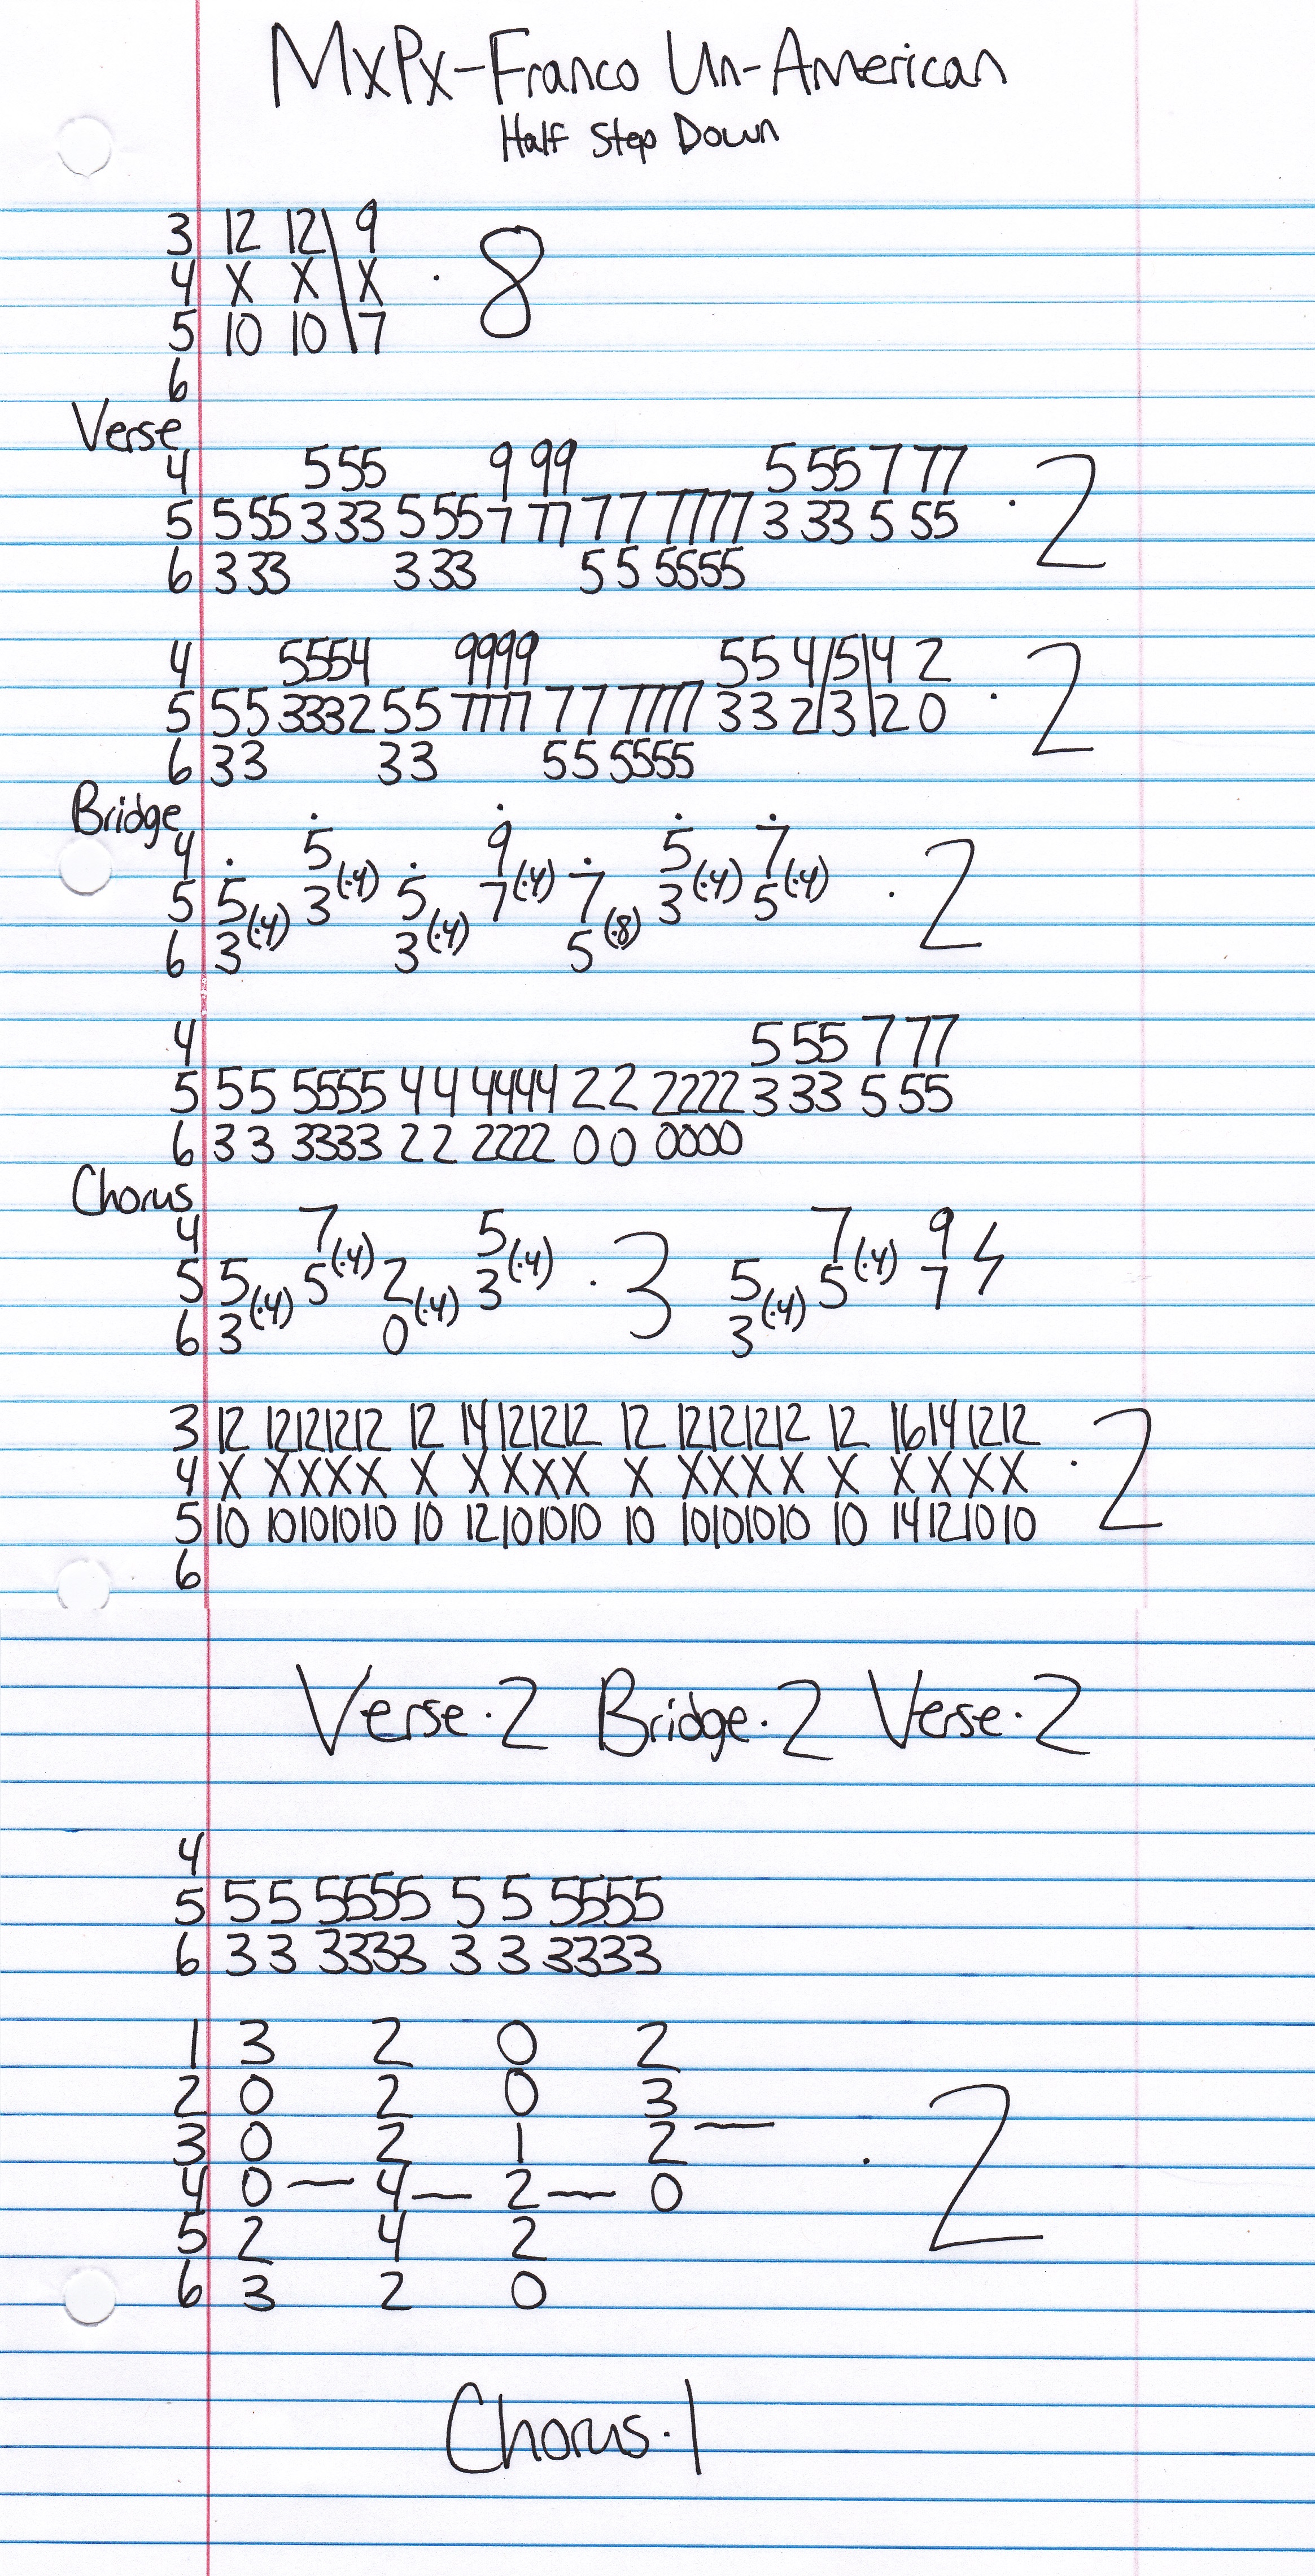 MxPx-Franco Un-American
Half Step Down
3 12 12\ 9
4 X X \ X · 8
5 10 10 \ 7
6
Verse
4 555 9 99 5 55 7 77
5 5 55 3 33 5 55 7 77 7 7 7777 3 33 5 55 · 2
6 3 33 3 33 5 5 5555
4 5554 9999 55 4/5\4 2
5 55 3332 55 7777 77 7777 33 2/3\2 0 · 2
6 33 33 55 5555
Bridge
4 · 5 · 9 · · 5 · 7 ·
5 5 (·4) 3 (·4) 5 (·4) 7 (·4) 7 (·8) 3 (·4) 5 (·4) · 2
6 3 3 5
4 5 55 7 77
5 55 5555 44 4444 22 2222 3 33 5 55
6 33 3333 22 2222 00 0000
Chorus
4 7 5 7 9
5 5 (·4) 5 (·4) 2 (·4) 3 (·4) · 3 5 (·4) 5 (·4) 7
6 3 0 3
3 12 12121212 12 14121212 12 12121212 12 16141212
4 X XXXX X XXXX X XXXX X XXXX · 2
5 10 10101010 10 12101010 10 10101010 10 14121010
6
Verse·2 Bridge·2 Verse·2
4
5 55 5555 5 5 5555
6 33 3333 3 3 3333
1 3 2 0 2
2 0 2 0 3
3 0 2 1 2 — · 2
4 0 — 4 — 2 — 0
5 2 4 2
6 3 2 0
Chorus·1